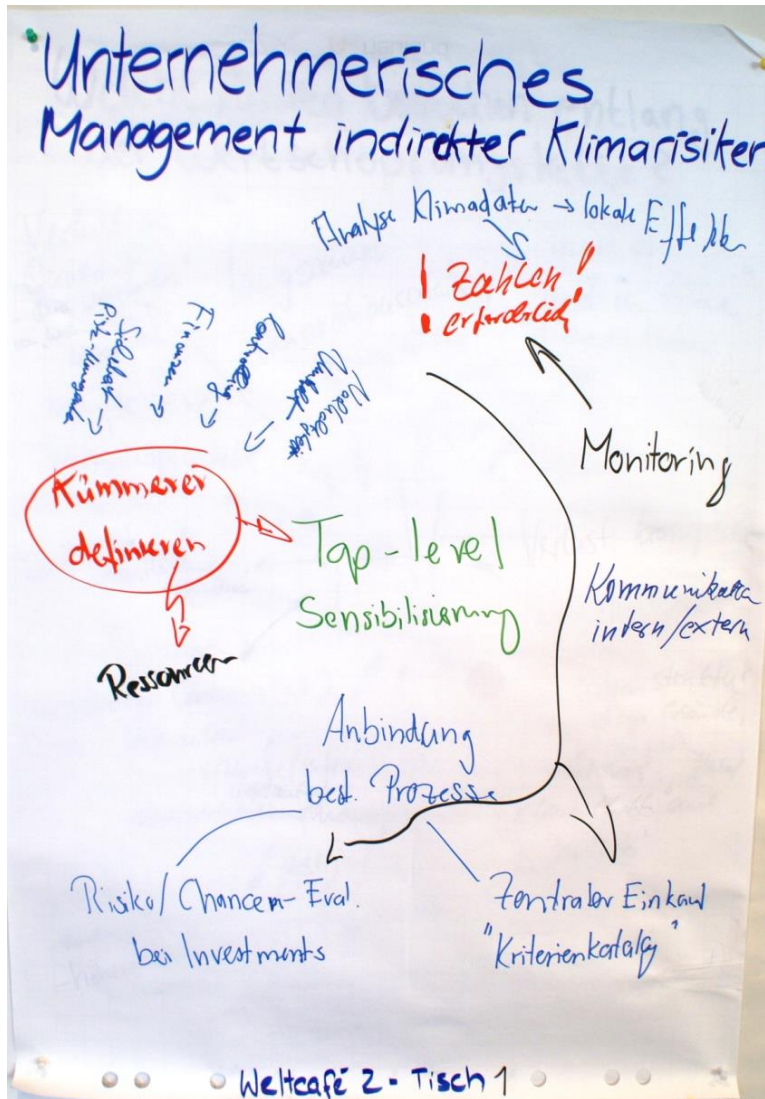 Unternehmerisches
Management indirekter Klimarisiken
Analyse Klimadaten → lokale Effekte
! Zahlen !
! erforderlich !
Finanzen →
Controlling →
Umwelt →
Nachhaltigkeit
Kümmerer
definieren
Top-level
Sensibilisierung
Ressourcen
Monitoring
Kommunikation
intern/extern
Anbindung
best. Prozesse
Risiko/Chancen-Eval.
bei Investments
Zentraler Einkauf
"Kriterienkatalog"
Weltcafé 2 - Tisch 1